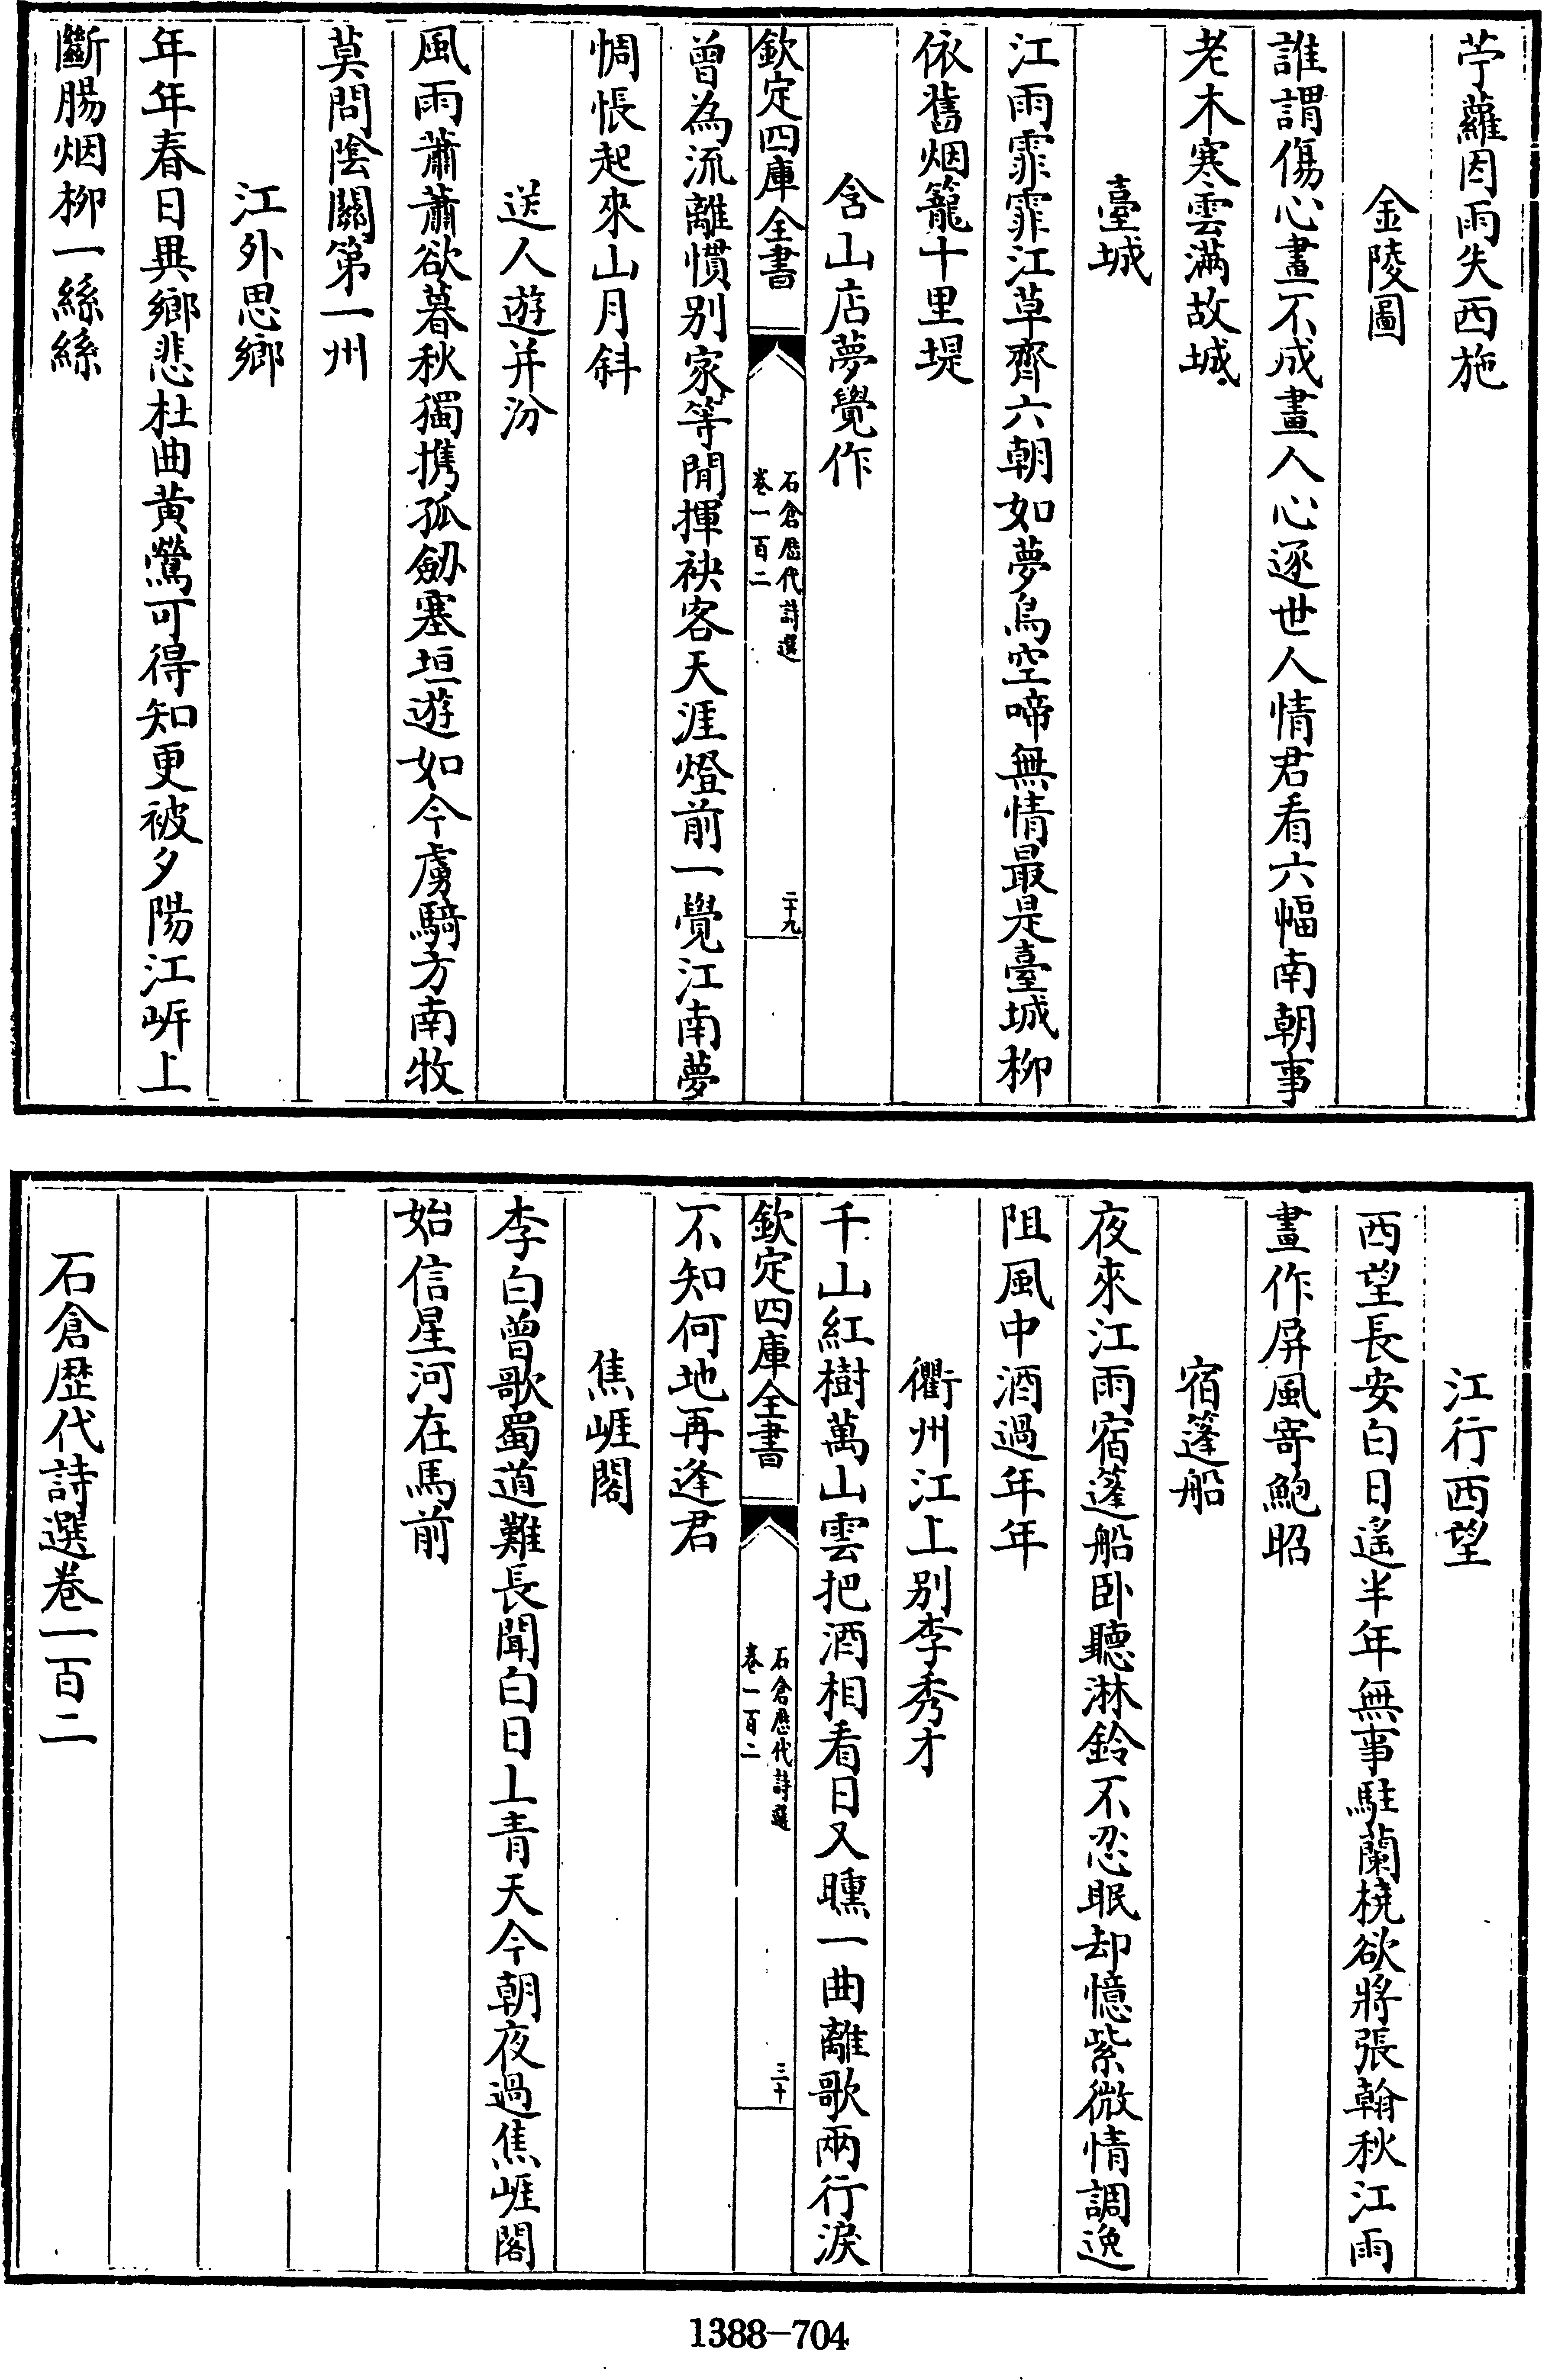 苧蘿因雨失西施
金陵圖
誰謂傷心畫不成畫人心逐世人情君看六幅南朝事
老木寒雲滿故城
臺城
江雨霏霏江草齊六朝如夢鳥空啼無情最是臺城柳
依舊烟籠十里堤
含山店夢覺作
欽定四庫全書
石倉歷代詩選
卷一百二
二十九
曾為流離慣別家等閒揮袂客天涯燈前一覺江南夢
惆悵起來山月斜
送人遊并汾
風雨蕭蕭欲暮秋獨携孤劔塞垣遊如今虜騎方南牧
莫問陰關第一州
江外思鄉
年年春日異鄉悲杜曲黃鶯可得知更被夕陽江岍上
斷腸烟柳一絲絲
江行西望
西望長安白日遙半年無事駐蘭橈欲將張翰秋江雨
畫作屏風寄鮑昭
宿篷船
夜來江雨宿篷船卧聽淋鈴不忍眠却憶紫微情調逸
阻風中酒過年年
衢州江上別李秀才
千山紅樹萬山雲把酒相看日又曛一曲離歌兩行淚
欽定四庫全書
石倉歷代詩選
卷一百二
三十
不知何地再逢君
焦崕閣
李白曾歌蜀道難長聞白日上青天今朝夜過焦崕閣
始信星河在馬前
石倉歷代詩選卷一百二
1388-704